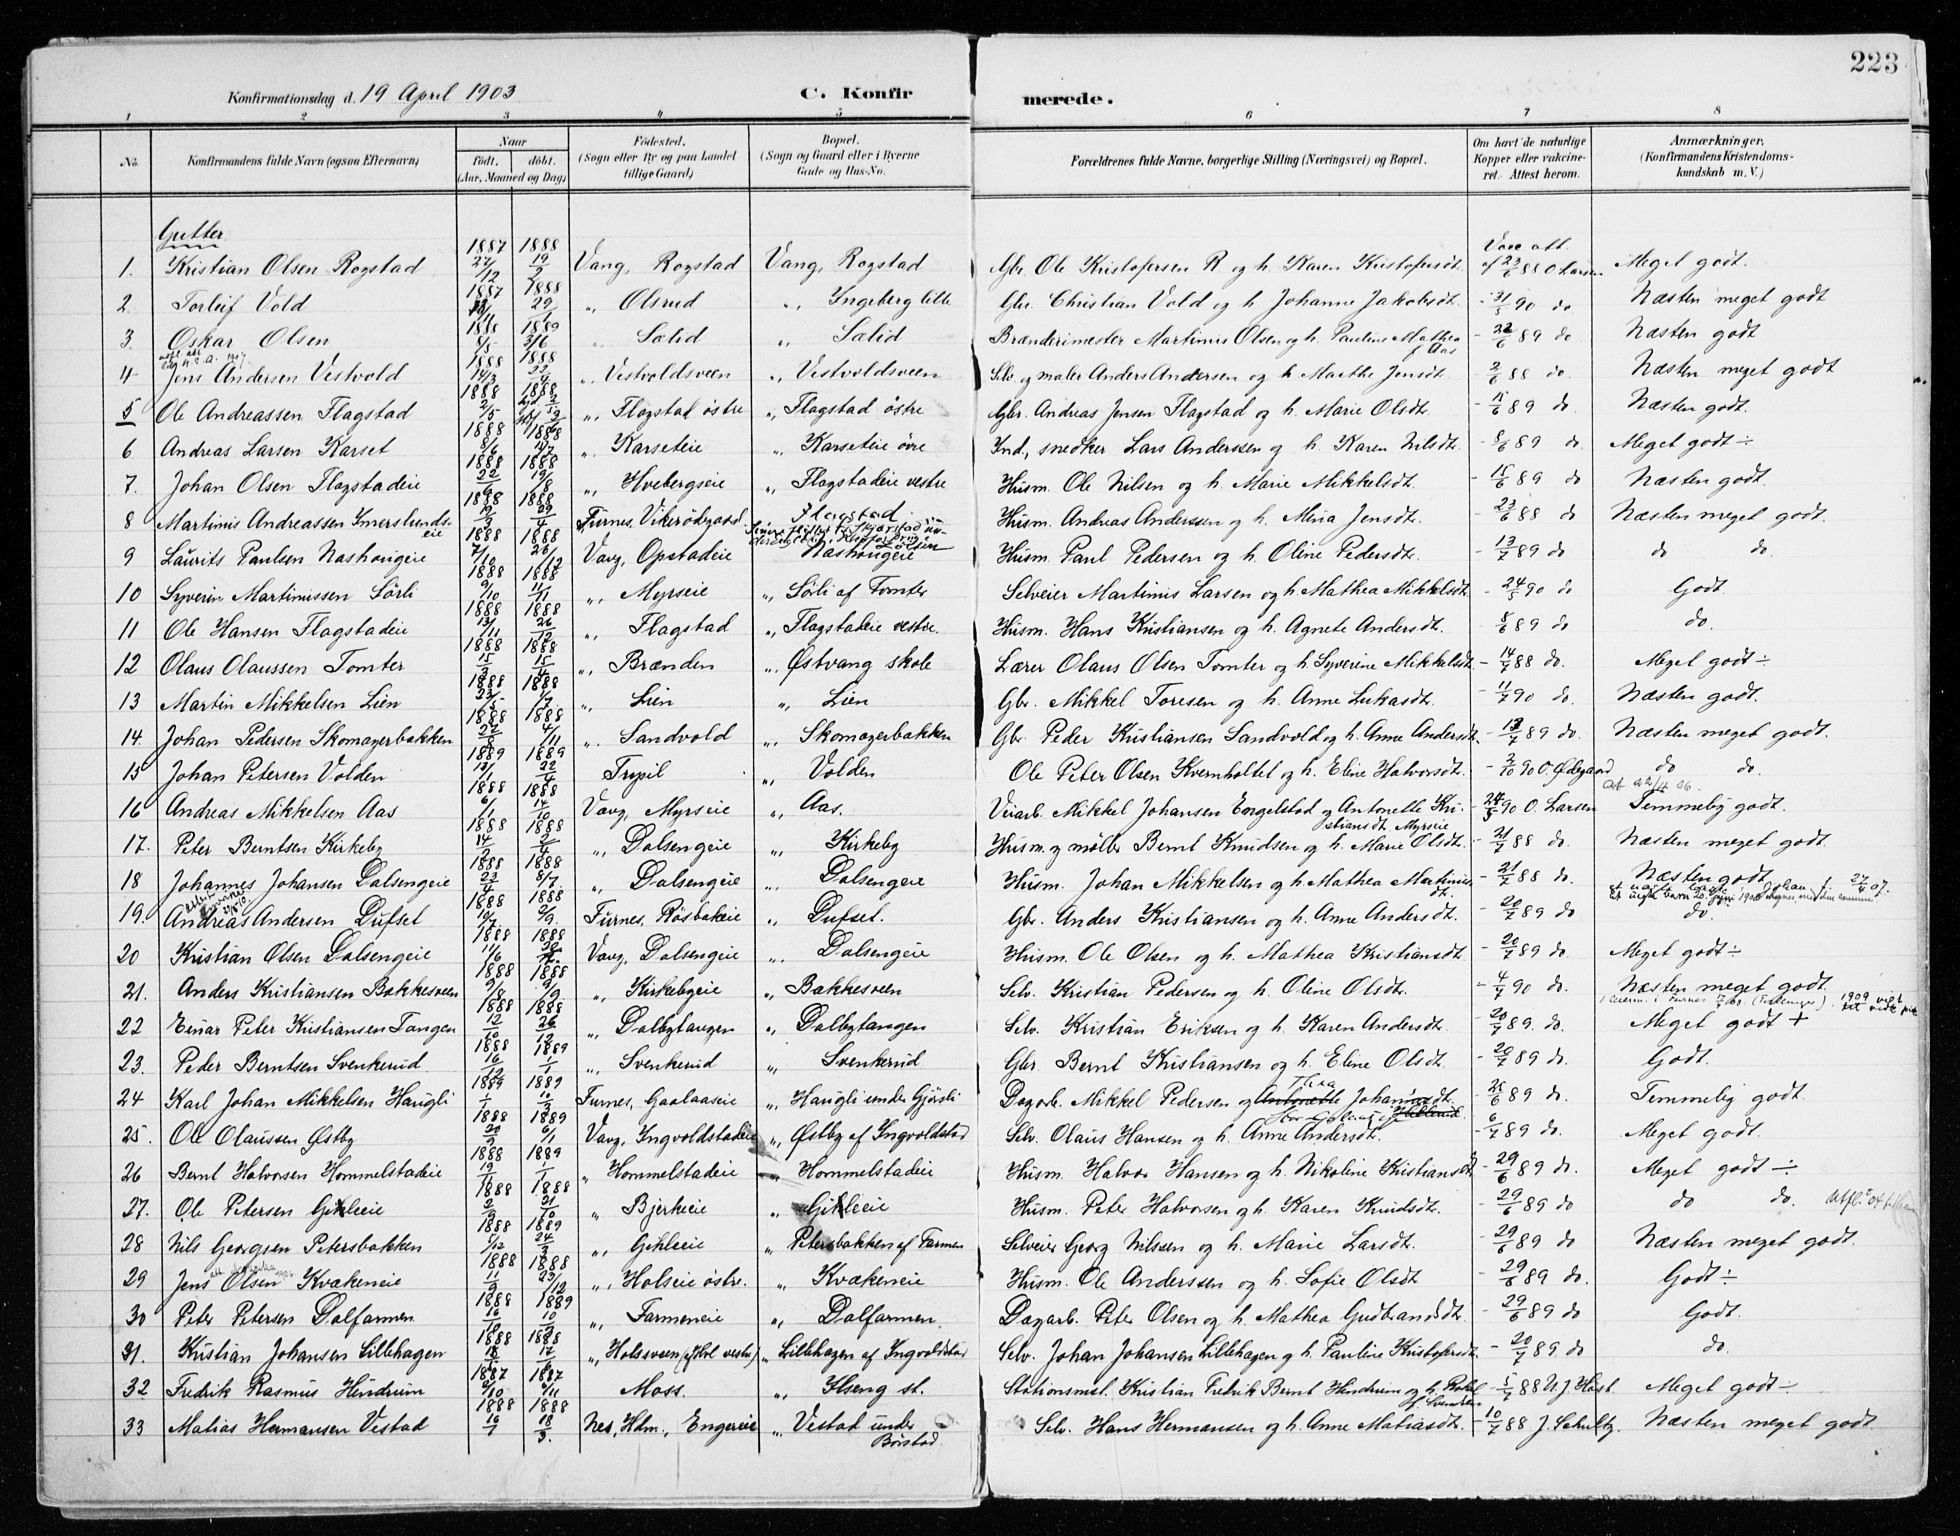 223
Konfirmationsdag d. 19 April 1903 C. Konfirmerede.
1 2 3 4 5 6 7 8
No. Konfirmandens fulde Navn (ogsaa Efternavn) Naar født. døbt. (Aar, Maaned og Dag) Fødested. (Sogn eller By og paa Landet tillige Gaard) Bopæl. (Sogn og Gaard eller i Byerne Gade og Hus-No. Forældrenes fulde Navne, borgerlige Stilling (Næringsvei) og Bopæl. Om havt de naturlige Kopper eller vakcineret. Attest herom. Anmærkninger, (Konfirmandens Kristendomskundskab m. V.)
Gutter
1. Kristian Olsen Rogstad 1887 27/12 1888 19/2 Vang, Rogstad Vang, Rogstad Gbr. Ole Kristofersen R og h. Karen Kristofersdt. Vacc att. af 23/6 88 O Larsen Meget godt.
2 Torleif Vold 1887 1888 29/1 „ Olsrud „ Ingeberg lille Gbr. Christian Vold og h. Johanne Jakobsdt. - 31/5 90 do Næsten meget godt
3. Oskar Olsen 1888 8/5 1889 3/6 „ Sælid „ Sælid Brænderimester Martinus Olsen og h. Pauline Mathea f. Aas - 22/6 89 do Næsten godt
4 Jens Andersen Vestvold 1888 14/3 1888 22/4 „ Vestvoldsveen „ Vestvoldsveen Selv. og maler Anders Andersen og h. Marthe Jensdt. - 2/6 88 do Næsten meget godt
5 Ole Andreassen Flagstad 1888 2/5 1888 „ Flagstad østre „ Flagstad østre Gbr. Andreas Jensen Flagstad og h. Marie Olsdt. - 11/6 89 do. Næsten godt.
6 Andreas Larsen Karset 1888 8/6 1888 „ Karseteie „ Karseteie øvre Ind, snedker Lars Anderssen og h. Karen Nilsdt. - 8/6 89 do Meget godt ÷
7. Johan Olsen Flagstadeie 1888 22/6 1888 19/8 „ Hvebergseie „ Flagstadeie vestre Husm. Ole Nilsen og h. Marie Mikkelsdt. - 15/6 89 do Næsten godt.
8 Martinus Andreassen Imerslundseie 1888 1888 29/4 Furnes, Vikerødegaard Flagstad Husm. Andreas Anderssen og h. Mina Jensdt. - 23/6 88 do Næsten meget godt.
9 Laurits Paulsen Nashougeie 1888 7/10 1888 26/12 Vang, Opstadeie Nashougeie Husm. Paul Pedersen og h. Oline Pedersdt. - 13/7 89 do do do.
10 Syverin Martinussen Sörli 1888 9/10 1888 11/11 „ Myrseie „ Sörli af Tomter Selveier Martinus Larsen og h. Mathea Mikkelsdt. - 24/5 90 do Godt.
11 Ole Hansen Flagstadeie 1888 13/11 1888 26/12 „ Flagstad „ Flagstadeie vestre. Husm. Hans Kristiansen og h. Agnete Andersdt. - 8/6 89 do do.
12 Olaus Olaussen Tomter 1888 15/2 1888 15/4 „ Brænden „ Østvang skole Lærer Olaus Olsen Tomter og h. Syverine Mikkelsdt. - 14/7 88 do. Meget godt ÷
13 Martin Mikkelsen Lien 1888 23/5 1888 1/7 „ Lien „ Lien Gbr. Mikkel Toresen og h. Anne Lukasdt. - 11/7 90 do. Næsten godt.
14. Johan Pedersen Skomagerbakken 1888 27/8 1888 4/11 „ Sandvold „ Skomagerbakken Gbr. Peder Kristiansen Sandvold og h. Anne Andersdt. - 13/7 89 do. Næsten meget godt.
15 Johan Petersen Volden 1889 13/1 1889 22/4 Trysil „ Volden Ole Peter Olsen Kvernholtet og h. Eline Halvorsdt. - 3/10 90 O. Ødegaard do do.
16 Andreas Mikkelsen Aas 1888 6/1 1888 14/10 Vang, Myrseie „ Aas. Veiarb. Mikkel Johansen Engelstad og Antonette Kristiansdt. Myrseie - 24/5 90 O. Larsen Temmelig godt.
17. Peter Berntsen Kirkeby 1888 14/2 1888 2/4 „ Dalsengeie „ Kirkeby Husm. og møller Bernt Knudsen og h. Marie Olsdt. - 21/7 88 do. Næsten meget godt.
18 Johannes Johansen Dalsengeie 1888 23/4 1888 8/7 „ Dalsengeie „ Dalsengeie Husm. Johan Mikkelsen og h. Mathea Martinusdt. - 21/7 88 do. Næsten godt.
19. Andreas Andersen Dufset 1888 10/7 1888 2/9 Furnes, Røsbakeie „ Dufset. Gbr. Anders Kristiansen og h. Anne Andersdt. - 20/7 89 do do.
20 Kristian Olsen Dalsengeie 1888 11/6 1888 Vang, Dalsengeie „ Dalsengeie Husm. Ole Olsen og h. Mathea Kristiansdt. - 20/7 89 do. Meget godt ÷
21. Anders Kristiansen Bakkesveen 1888 9/8 1888 9/9 „ Kirkebyeie „ Bakkesveen Selv. Kristian Pedersen og h. Oline Olsdt. - 4/7 90 do. Næsten meget godt.
22 Einar Peter Kristiansen Tangen 1888 12/10 1888 26/12 „ Dalbytangen „ Dalbytangen Selv. Kristian Eriksen og h. Karen Andersdt. - 20/7 89. do. Meget godt +
23. Peder Berntsen Svenkerud 1888 16/12 1889 1/1 „ Svenkerud „ Svenkerud Gbr. Bernt Kristiansen og h. Eline Olsdt. - 20/7 89 do. Godt.
24 Karl Johan Mikkelsen Haugli 1889 1/1 1889 10/3 Furnes, Gaalaaseie „ Haugli under Gjørsli Dagarb. Mikkel Pedersen og Thea Johannesdt. - 28/6 89 do. Temmelig godt.
25. Ole Olaussen Østby 1888 20/9 1889 6/1 Vang, Ingvoldstadeie „ Østby af Ingvoldstad Selv. Olaus Hansen og h. Anne Andersdt. - 6/7 89 do. Meget godt.
26 Bernt Halvorsen Hommelstadeie 1888 1889 1/1 „ Hommelstadeie „ Hommelstadeie Husm. Halvor Hansen og h. Nikoline Kristiansdt. - 29/6 89 do. Meget godt ÷
27. Ole Petersen Gikleie 1888 2/9 1888 21/10 „ Bjerkeeie „ Gikleie Husm. Peter Halvorsen og h. Karen Knudsdt. - 29/6 89 do do do.
28 Nils Georgsen Petersbakken 1888 5/12 1889 24/3 „ Gikleeie „ Petersbakken af Farmen Selveier Georg Nilssen og h. Marie Larsdt. - 29/6 89 do Næsten meget godt.
29 Jens Olsen Kvækeneie 1888 11/9 1888 23/12 „ Holseie østre. „ Kvækeneie Husm. Ole Anderssen og h. Sofie Olsdt. - 29/6 89 do. Godt ÷
30 Peter Petersen Dalfarmen 1888 16/10 1889 10/2 „ Farmeneie „ Dalfarmen. Dagarb. Peter Olsen og h. Mathea Gudbrandsdt. - 29/6 89 do Godt.
31. Kristian Johansen Lillehagen 1888 1888 17/6 „ Holssveen (af Hol vestre) „ Lillehagen af Ingvoldstad Selv. Johan Johansen Lillehagen og h. Pauline Kristofersdt. - 20/7 89 do do.
32 Fredrik Rasmus Hindrum 1887 9/10 1887 6/11 Moss. „ Ilseng st. Stationsmest. Kristian Fredrik Bernt Hindrum og h. Rakel f. Svendsen - 5/7 88 N. J Høst. Meget godt ÷
33 Matias Hermansen Vestad 1888 16/1 1888 18/3. Nes, Hdm., Engereie „ Vestad under Børstad. Selv. Hans Hermansen og h. Anne Matiasdt. - 10/7 88 J. Schultz. Næsten meget godt.